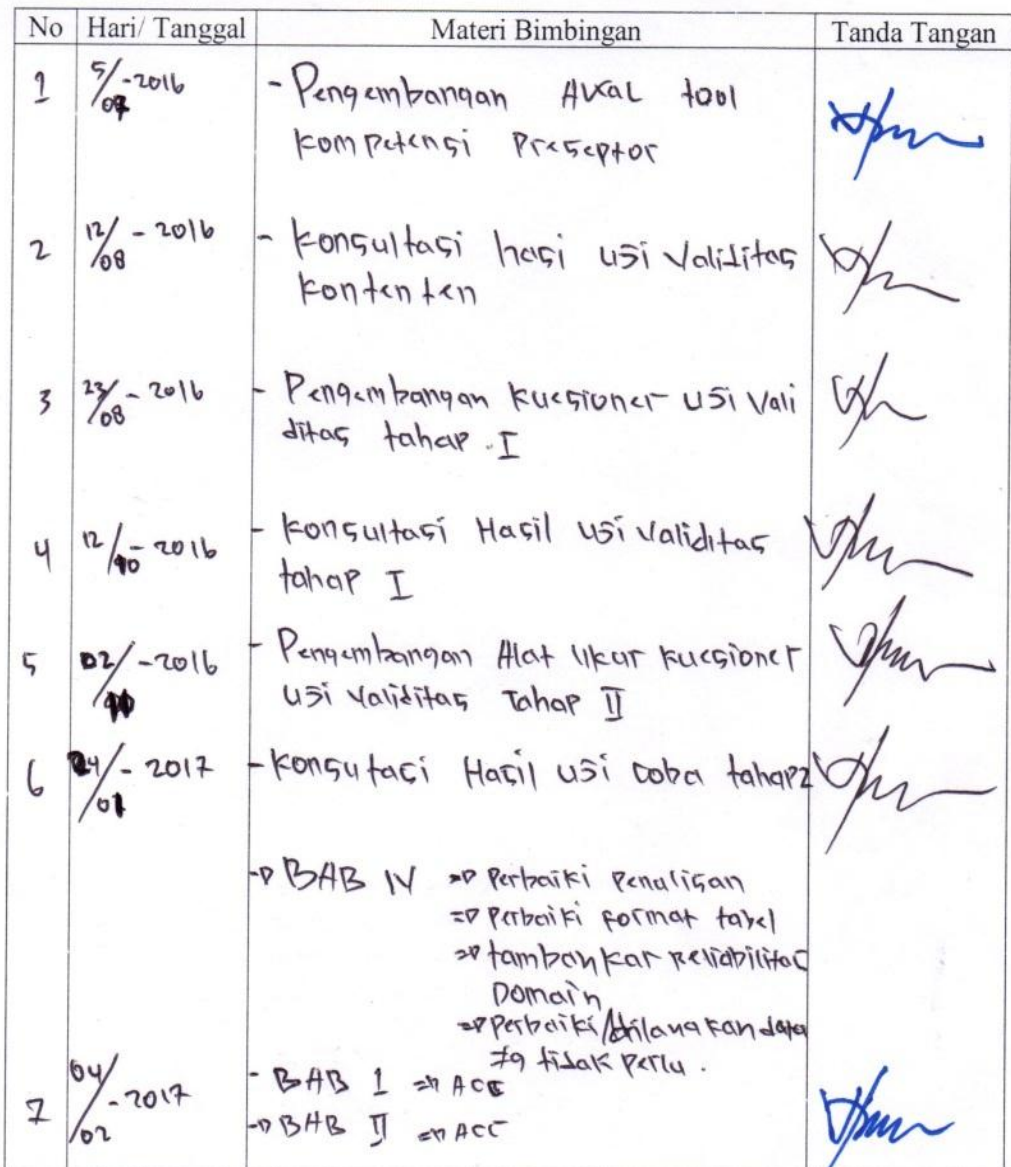 No Hari/ Tanggal Materi Bimbingan Tanda Tangan
1 5/07-2016 - Pengembangan Awal tool
kompetensi Preseptor
2 12/08 - 2016 - Konsultasi hasi uji Validitas
Kontenten
3 23/08 - 2016 - Pengembangan kuesioner uji Vali
ditas tahap I
4 12/10 - 2016 - Konsultasi Hasil uji Validitas
tahap I
5 02/11 - 2016 - Pengembangan Alat Ukur kuesioner
uji Validitas Tahap II
6 24/01 - 2017 - Konsutasi Hasil uji coba tahap 2
-> BAB IV => Perbaiki Penulisan
=> Perbaiki Format tabel
=> tambahkan Reliabilitas
Domain
=> Perbaiki/hilangkan data
yg tidak Perlu.
7 04/02 - 2017 - BAB I => ACC
-> BAB II => ACC